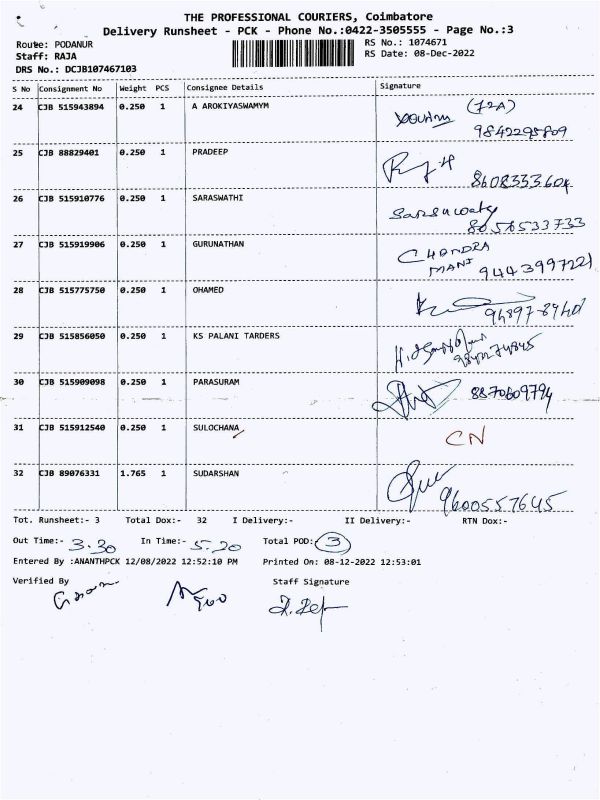 THE PROFESSIONAL COURIERS, Coimbatore
Delivery Runsheet - PCK - Phone No.:0422-3505555 - Page No.:3
Route: PODANUR
RS No.: 1074671
Staff: RAJA
RS Date: 08-Dec-2022
DRS No.: DCJB107467103
S No Consignment No Weight PCS Consignee Details Signature
24 CJB 515943894 0.250 1 A AROKIYASWAMYM (72A)
9842295809
25 CJB 88829401 0.250 1 PRADEEP
8608333604
26 CJB 515910776 0.250 1 SARASWATHI Saraswathy
8056533733
27 CJB 515919906 0.250 1 GURUNATHAN CHANDRA
MANI 9443997221
28 CJB 515775750 0.250 1 OHAMED
29 CJB 515856050 0.250 1 KS PALANI TARDERS
30 CJB 515909098 0.250 1 PARASURAM 8870609794
31 CJB 515912540 0.250 1 SULOCHANA CN
32 CJB 89076331 1.765 1 SUDARSHAN
9600557645
Tot. Runsheet:- 3 Total Dox:- 32 I Delivery:- II Delivery:- RTN Dox:-
Out Time:- 3.30 In Time:- 5.20 Total POD: 3
Entered By :ANANTHPCK 12/08/2022 12:52:10 PM Printed On: 08-12-2022 12:53:01
Verified By Staff Signature